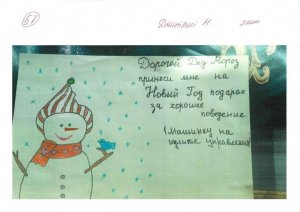 57
Дмитрий М. 7 лет
Дорогой Дед Мороз
принеси мне на
Новый Год подарок
за хорошие
поведение.
(Машинку на
пульте управления)